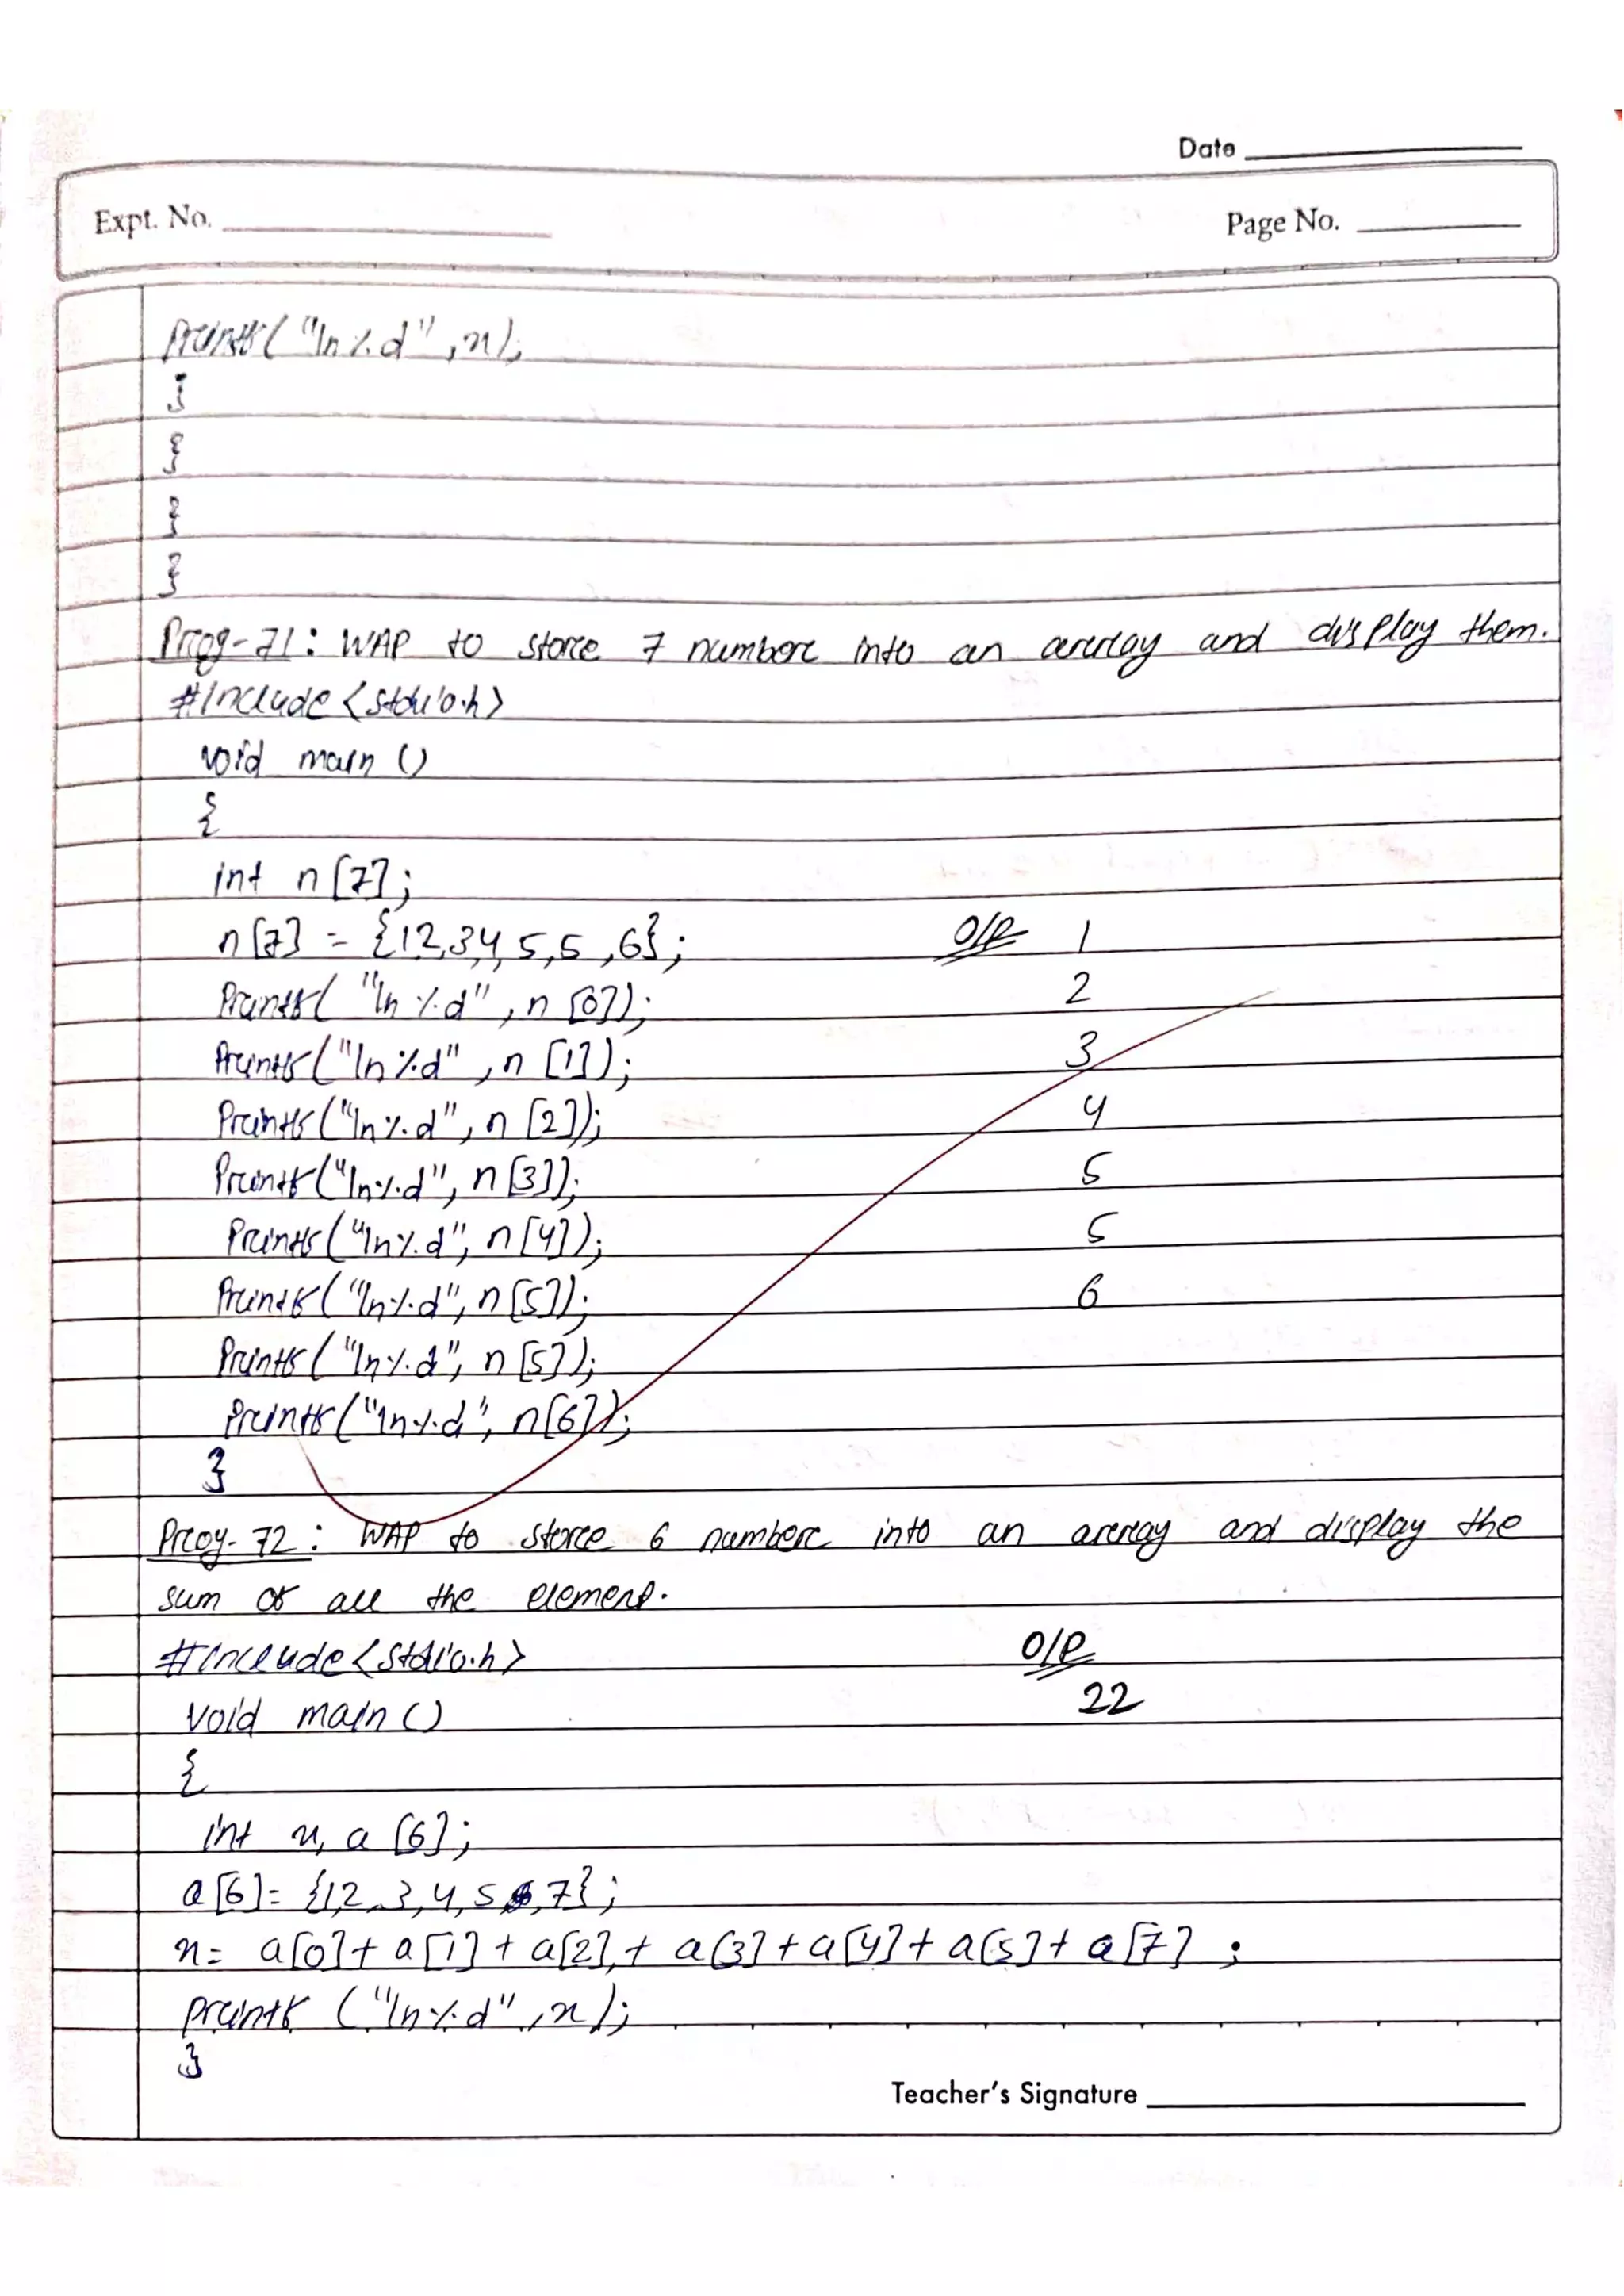 Date
Expt. No.
Page No.
printf("\n%d",x);
}
}
}
}
Prog-71: WAP to store 7 number into an array and display them.
#include<stdio.h>
void main ()
{
int n[7];
n[7] = {1,2,3,4,5,5,6}; O/P 1
printf("\n%d",n[0]); 2
printf("\n%d",n[1]); 3
printf("\n%d",n[2]); 4
printf("\n%d",n[3]); 5
printf("\n%d",n[4]); 5
printf("\n%d",n[5]); 6
printf("\n%d",n[5]);
printf("\n%d",n[6]);
}
Prog-72: WAP to store 6 number into an array and display the
sum of all the element.
#include<stdio.h> O/P
void main () 22
{
int x, a[6];
a[6]= {1,2,3,4,5,7};
x= a[0]+a[1]+a[2]+a[3]+a[4]+a[5]+a[7];
printf ("\n%d",x);
}
Teacher's Signature